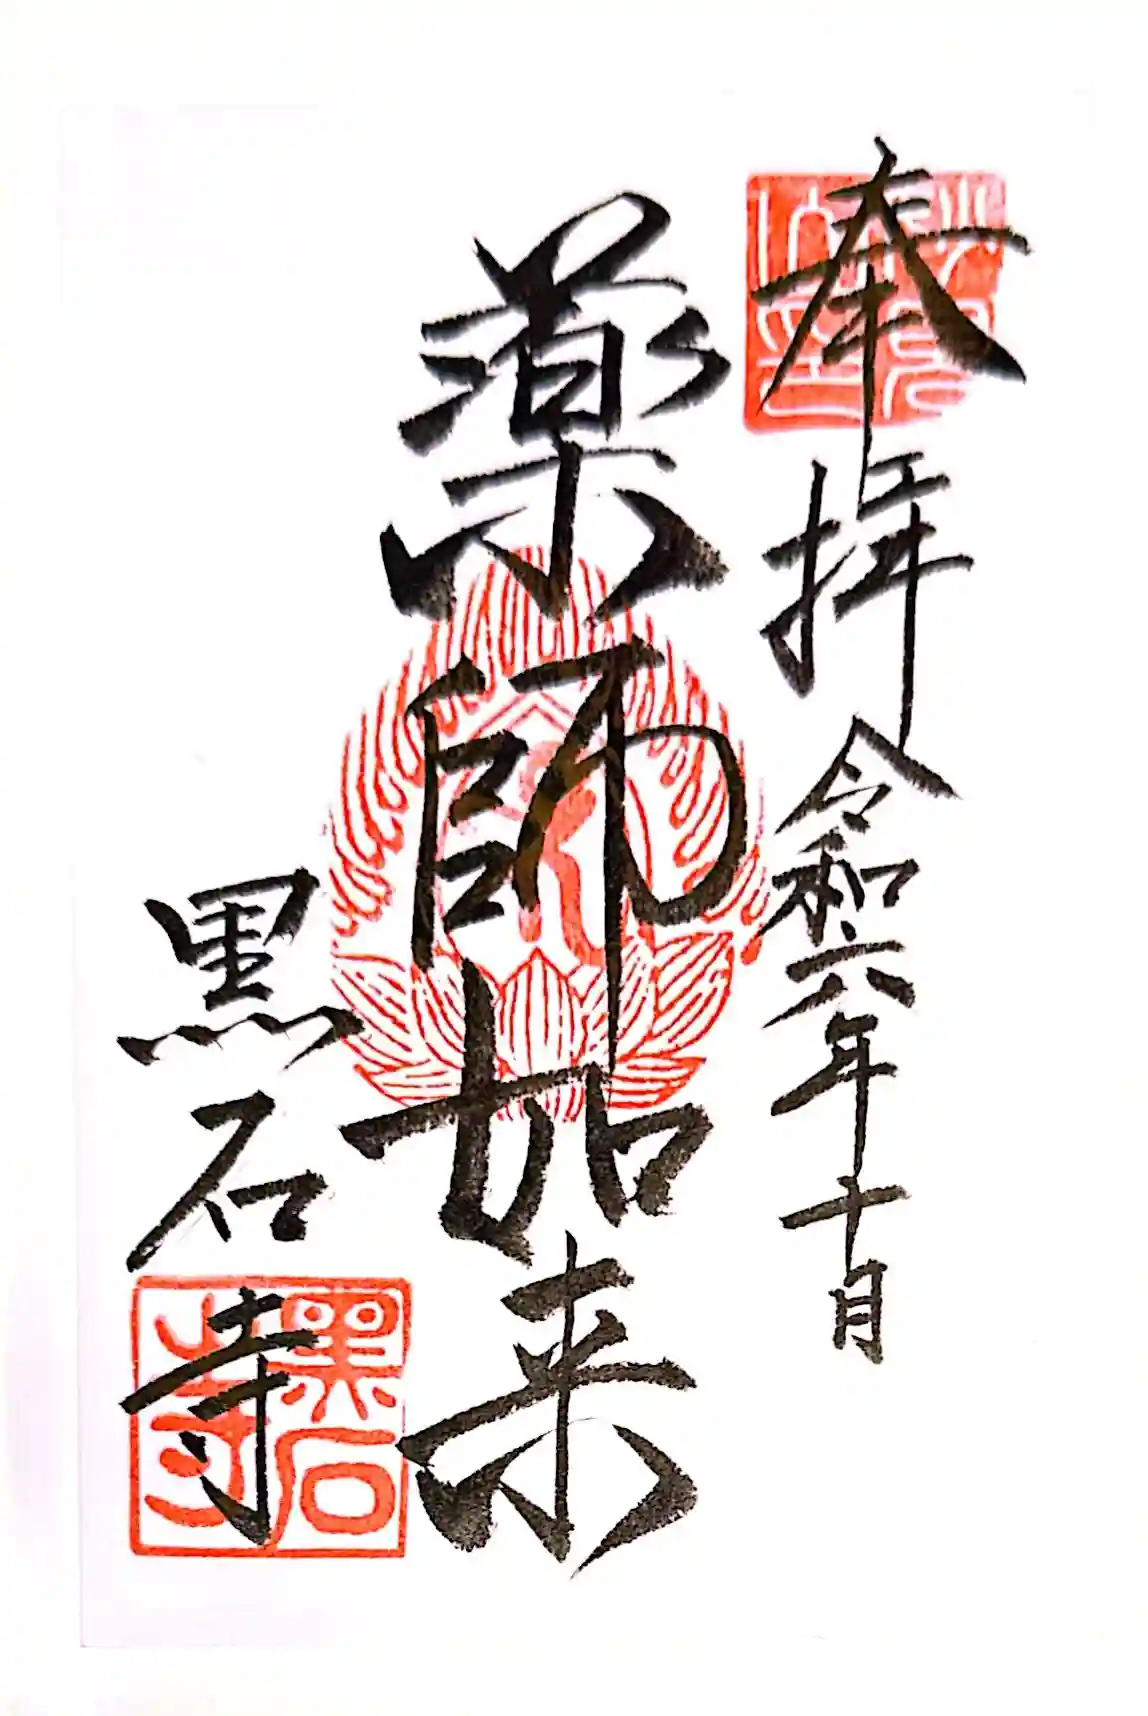 奉拝
令和六年十月
薬師如来
黒石寺
黒石寺